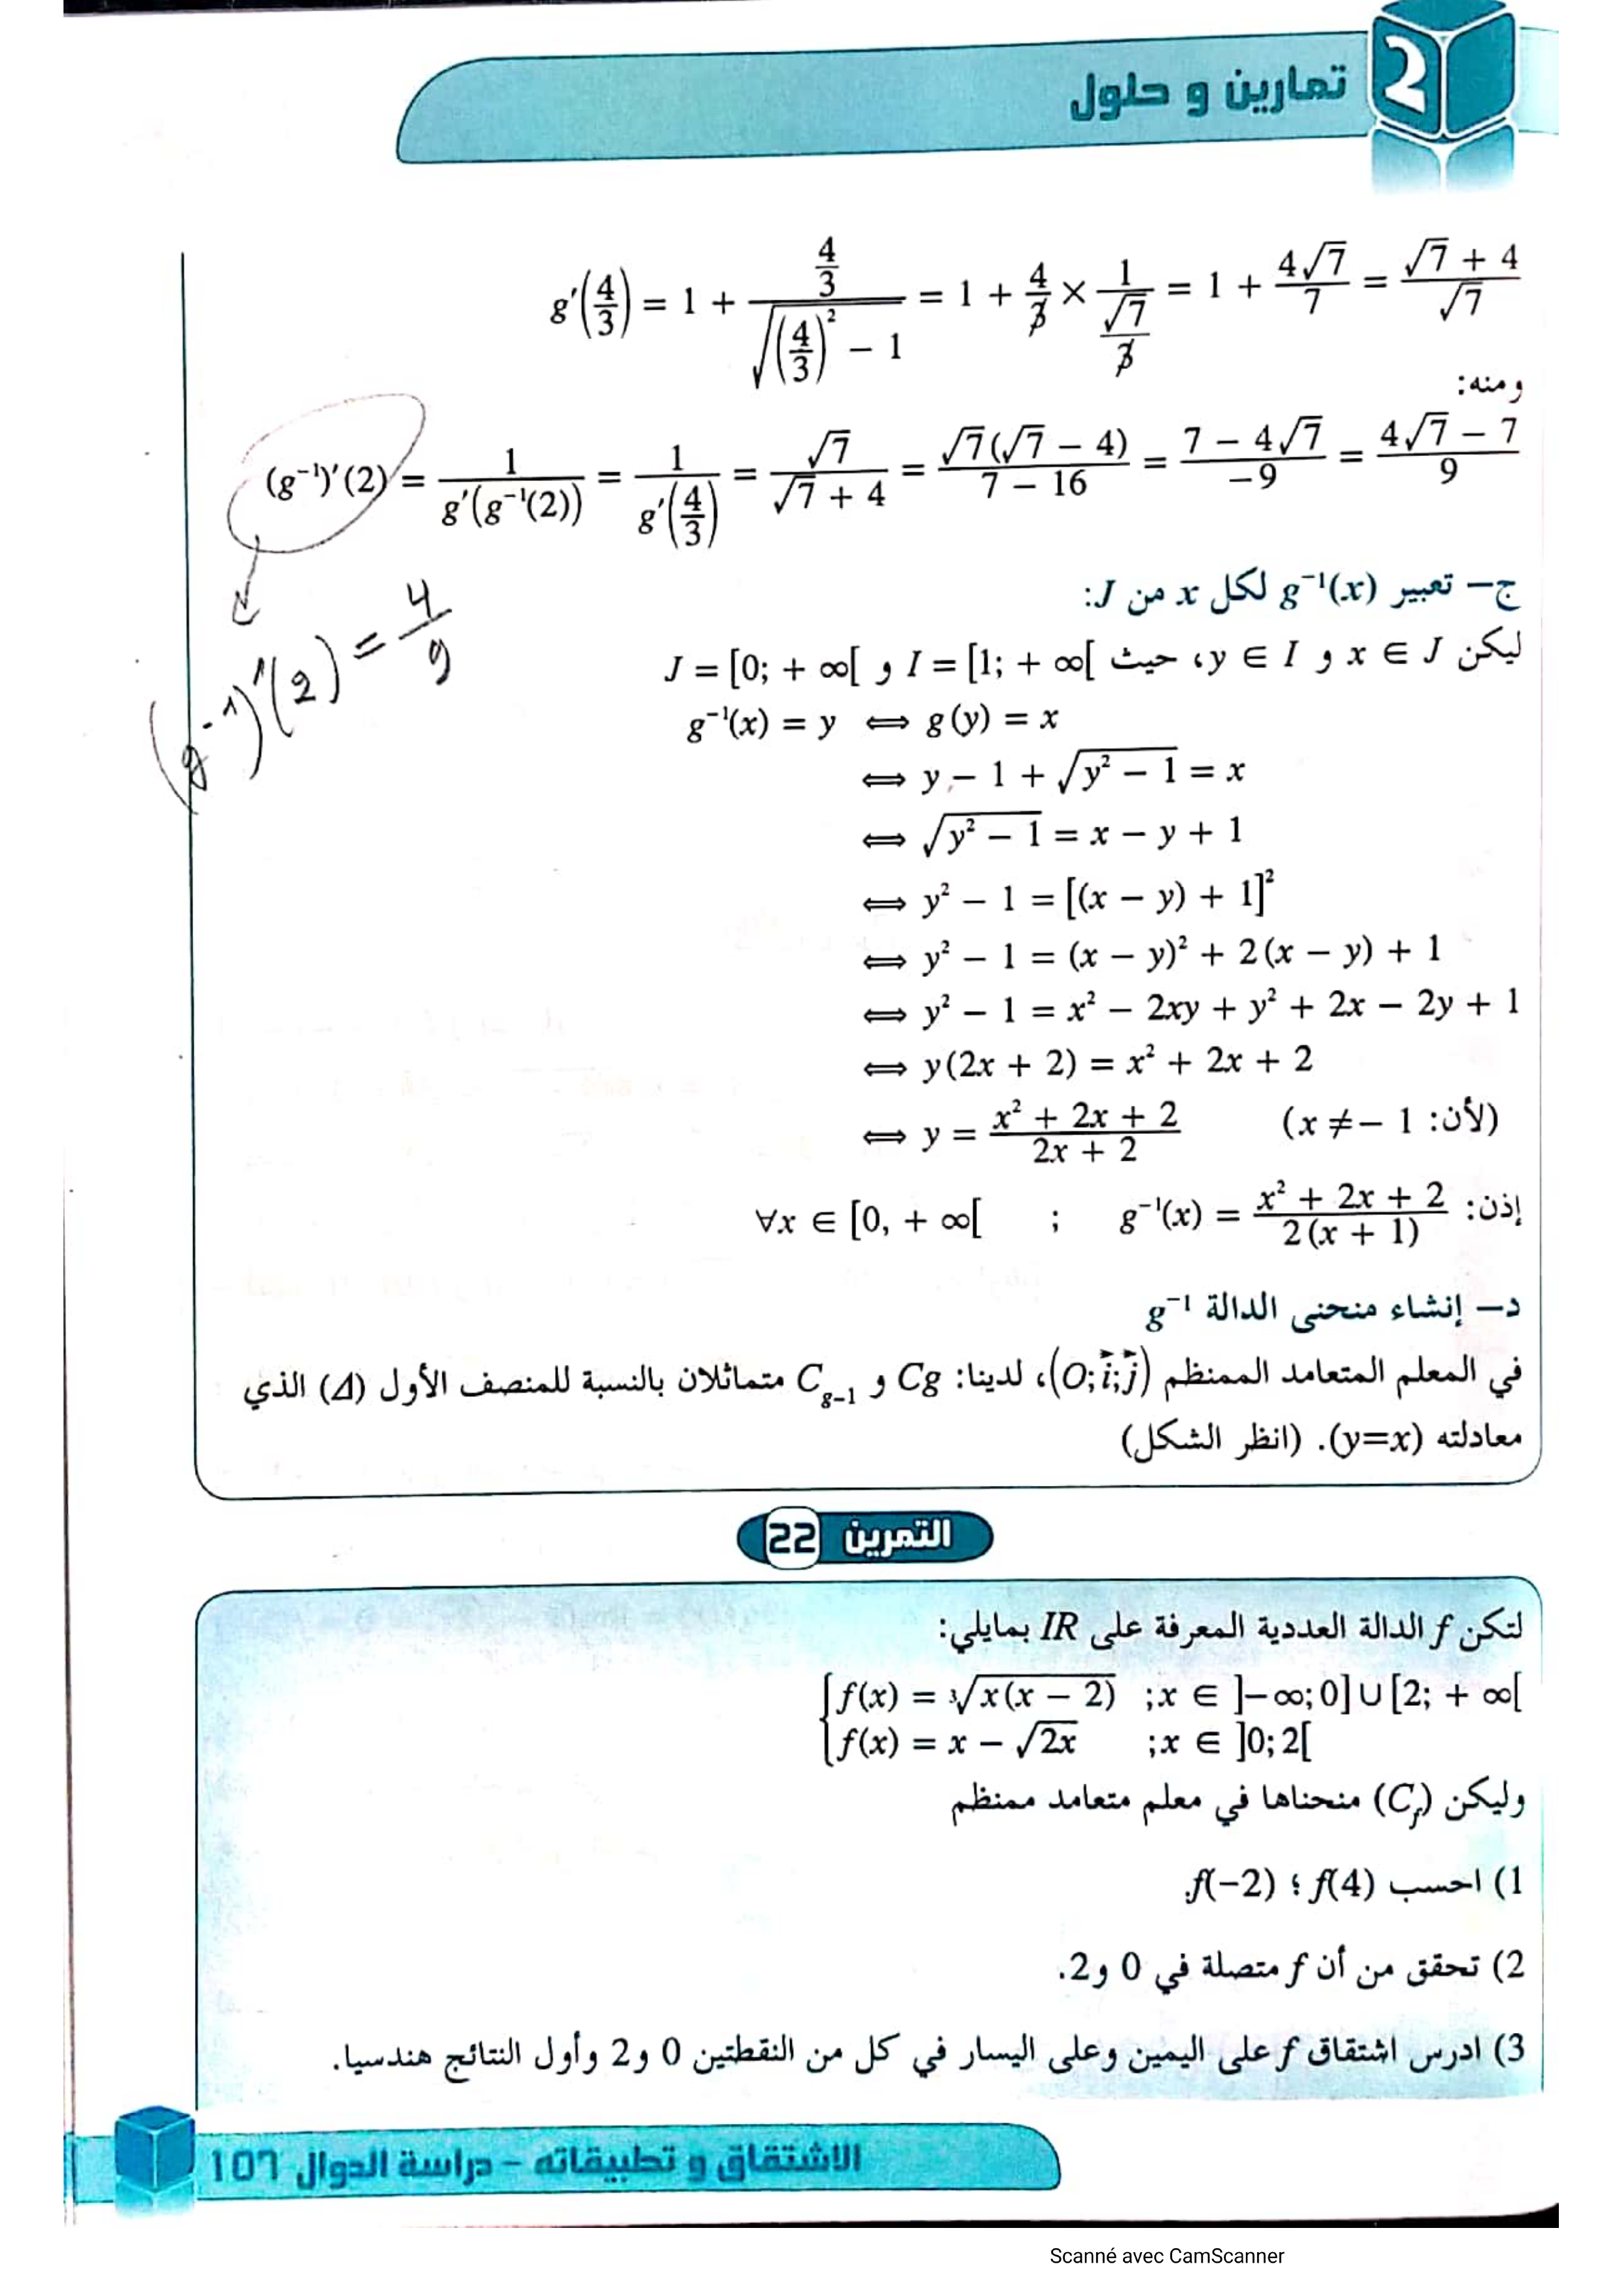 تمارين و حلول 2
g'(4/3) = 1 + (4/3)/√((4/3)² − 1) = 1 + 4/3 × 1/(√7/3) = 1 + 4√7/7 = (√7 + 4)/√7
ومنه:
(g⁻¹)'(2) = 1/g'(g⁻¹(2)) = 1/g'(4/3) = √7/(√7 + 4) = √7(√7 − 4)/(7 − 16) = (7 − 4√7)/−9 = (4√7 − 7)/9
(g⁻¹)'(2) = 4/9
ج– تعبير g⁻¹(x) لكل x من J:
ليكن x ∈ J و y ∈ I، حيث I = [1; + ∞[ و J = [0; + ∞[
g⁻¹(x) = y ⟺ g(y) = x
⟺ y − 1 + √(y² − 1) = x
⟺ √(y² − 1) = x − y + 1
⟺ y² − 1 = [(x − y) + 1]²
⟺ y² − 1 = (x − y)² + 2(x − y) + 1
⟺ y² − 1 = x² − 2xy + y² + 2x − 2y + 1
⟺ y(2x + 2) = x² + 2x + 2
⟺ y = (x² + 2x + 2)/(2x + 2) (لأن: x ≠ − 1)
إذن: g⁻¹(x) = (x² + 2x + 2)/(2(x + 1)) ; ∀x ∈ [0, + ∞[
د– إنشاء منحنى الدالة g⁻¹
في المعلم المتعامد الممنظم (O;i⃗;j⃗)، لدينا: Cg و C_g−1 متماثلان بالنسبة للمنصف الأول (Δ) الذي
معادلته (y=x). (انظر الشكل)
التمرين 22
لتكن f الدالة العددية المعرفة على IR بمايلي:
f(x) = ³√(x(x − 2)) ;x ∈ ]−∞;0]∪[2; + ∞[
f(x) = x − √(2x) ;x ∈ ]0;2[
وليكن (C_f) منحناها في معلم متعامد ممنظم
1) احسب f(4) ؛ f(−2).
2) تحقق من أن f متصلة في 0 و2.
3) ادرس اشتقاق f على اليمين وعلى اليسار في كل من النقطتين 0 و2 وأول النتائج هندسيا.
الاشتقاق و تطبيقاته – دراسة الدوال 107
Scanné avec CamScanner